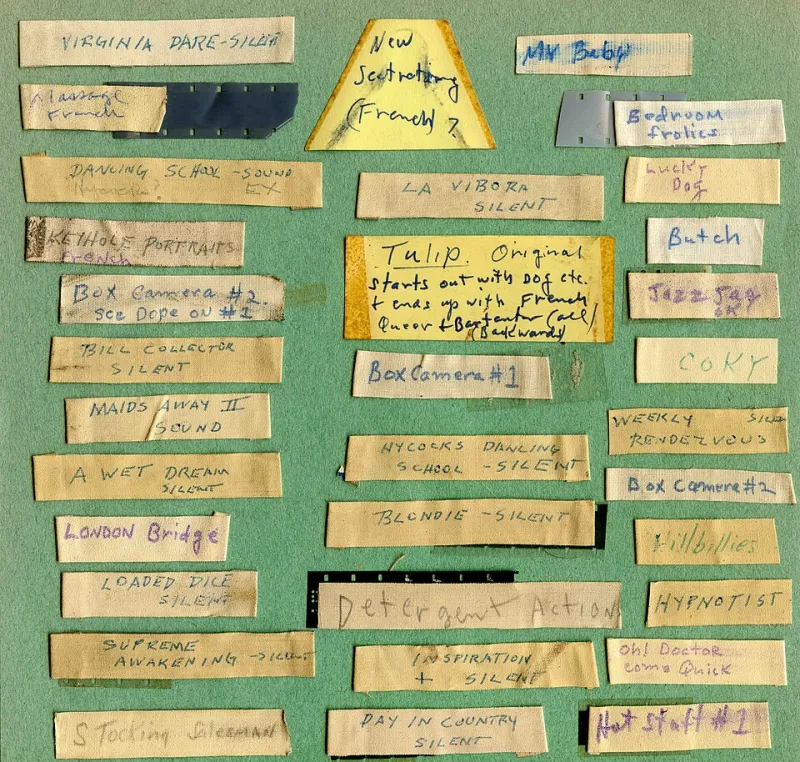 VIRGINIA DARE-SILENT
Massage
French
DANCING SCHOOL - SOUND
EX
KEYHOLE PORTRAITS
French
Box Camera #2.
see Dope on #1
BILL COLLECTOR
SILENT
MAIDS AWAY II
SOUND
A WET DREAM
SILENT
LONDON Bridge
LOADED DICE
SILENT
SUPREME
AWAKENING -SILENT
STocking SaleSMAN
New
(French) ?
LA VIBORA
SILENT
Tulip. Original
starts out with Dog etc.
+ ends up with French
Queer + Bartender (all)
(Backwards)
Box Camera #1
HYCOCKS DANCING
SCHOOL -SILENT
BLONDIE -SILENT
Detergent Action
INSPIRATION
+ SILENT
DAY IN COUNTRY
SILENT
My Baby
Bedroom
frolics
Lucky
Dog
Butch
Jazz Jag
OK
COKY
WEEKLY
RENDEZVOUS
Box Camera #2
Hillbillies
HYPNOTIST
Oh! Doctor
come Quick
Hot Stuff #1